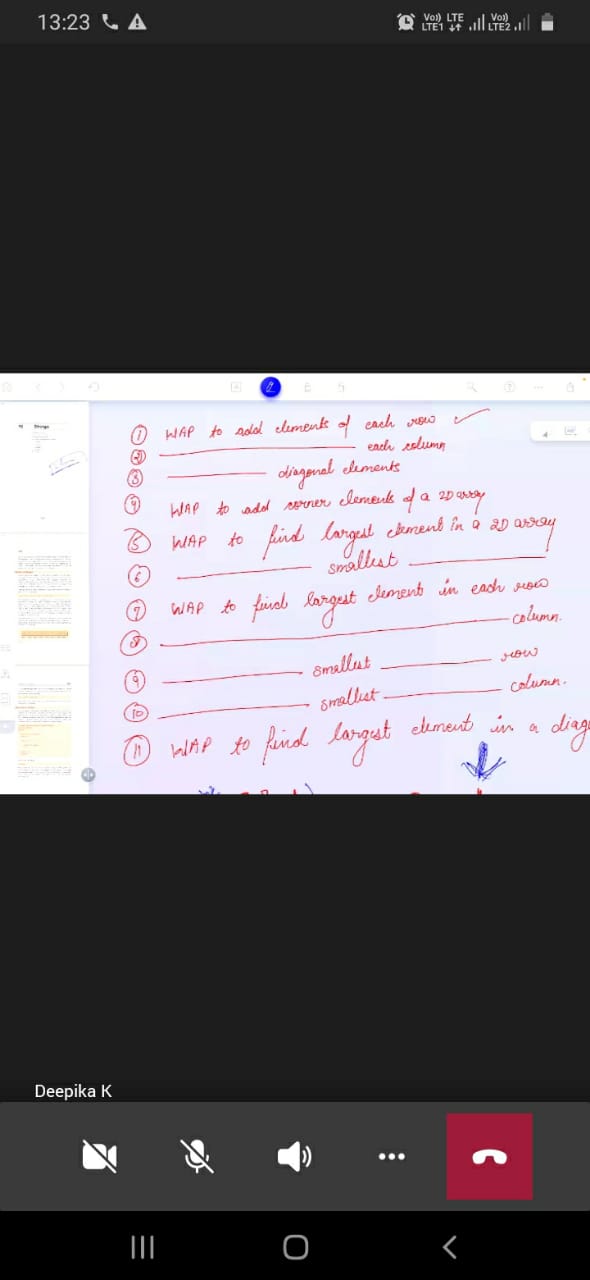 13:23
Vo) LTE Vo)
LTE1 LTE2
Strings
① WAP to add elements of each row
② each column
③ diagonal elements
④ WAP to add corner elements of a 2D array
⑤ WAP to find largest element in a 2D array
⑥ smallest
⑦ WAP to find largest element in each row
⑧ column.
⑨ smallest row
⑩ smallest column.
⑪ WAP to find largest element in a diag
Deepika K